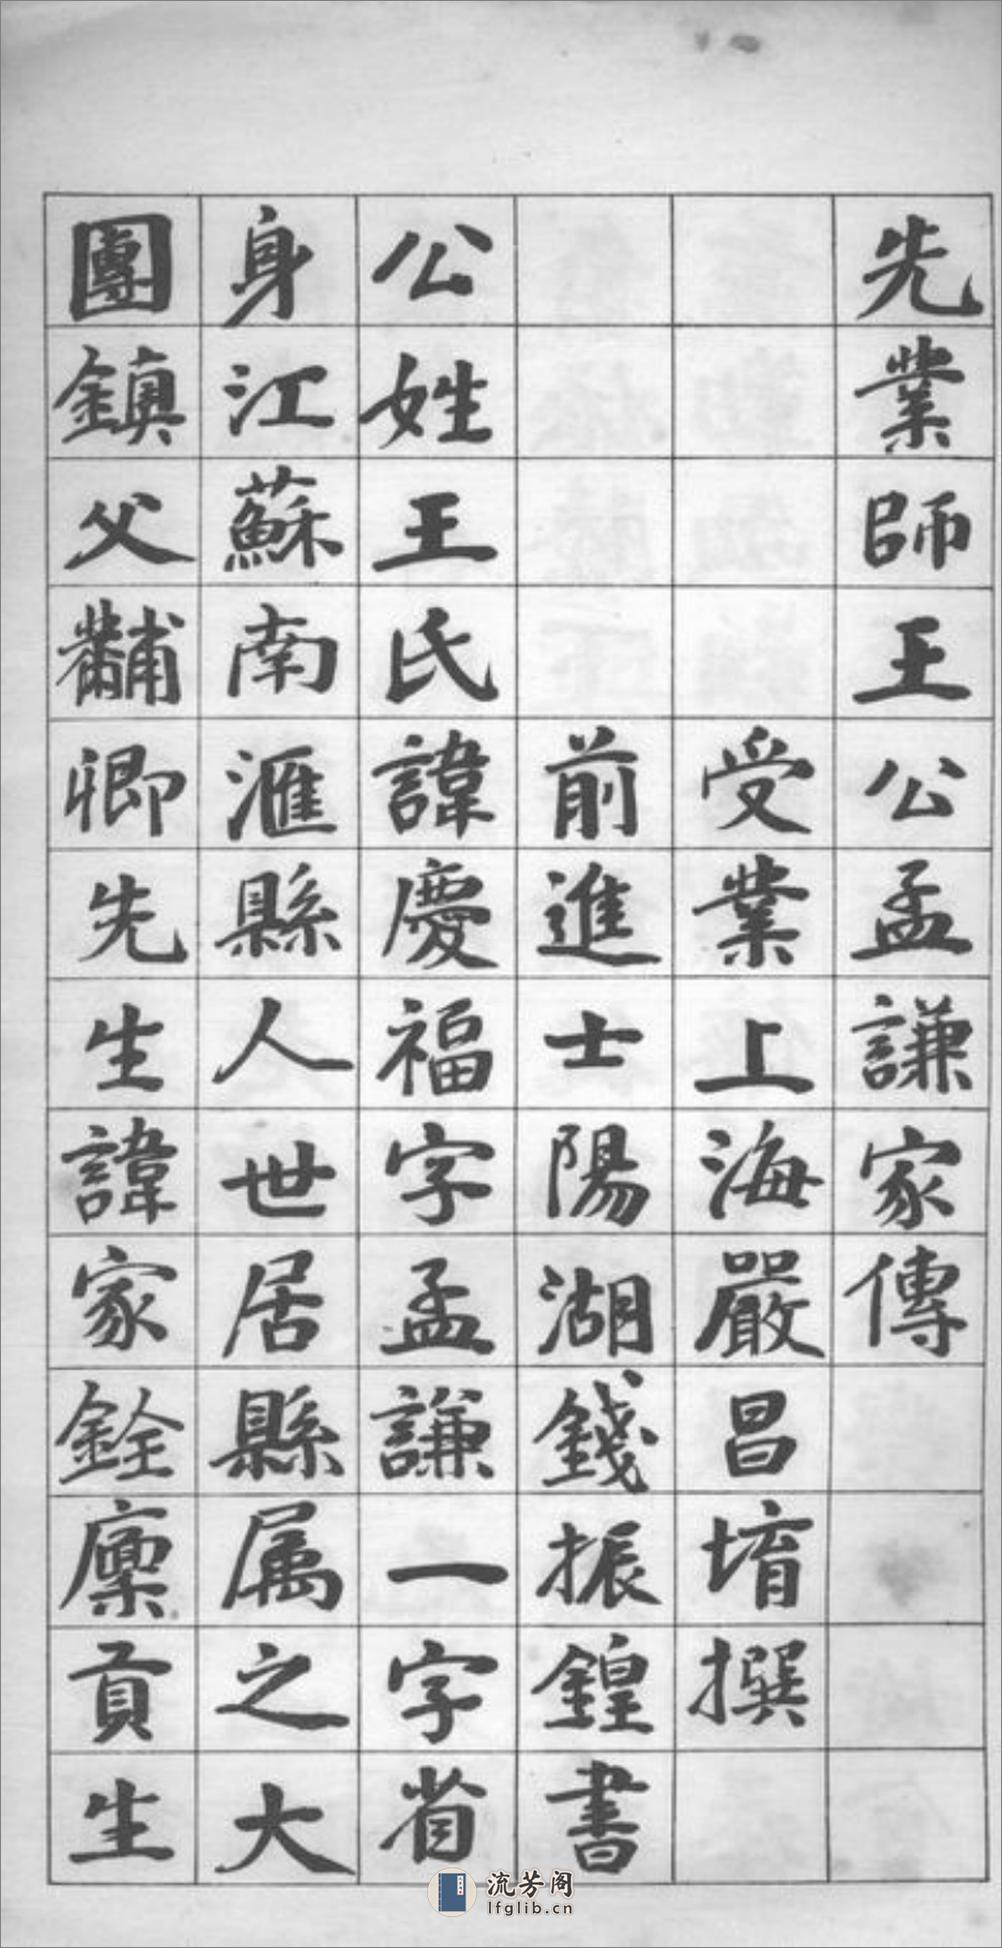 先業師王公孟謙家傳
受業上海嚴昌堉撰
前進士陽湖錢振鍠書
公姓王氏諱慶福字孟謙一字省
身江蘇南滙縣人世居縣属之大
團鎮父黼卿先生諱家銓廩貢生
流芳阁
lfglib.cn